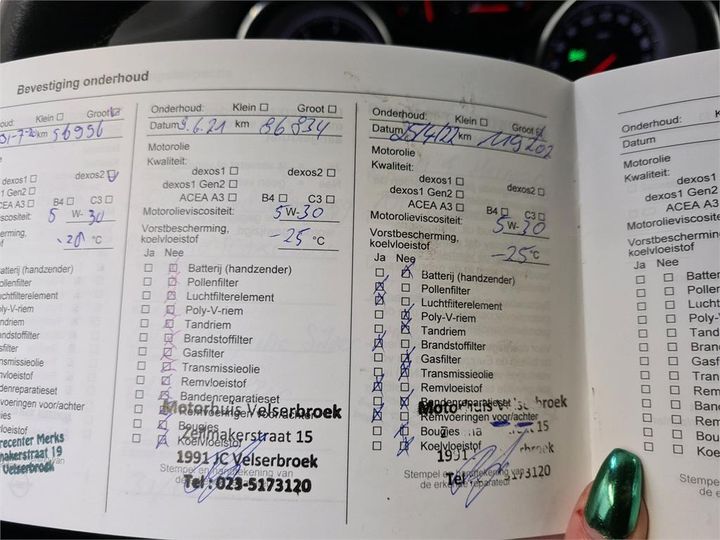 Bevestiging onderhoud
oud: Klein Groot
31-7-20 km 56956
dexos1 dexos2
dexos1 Gen2
ACEA A3 B4 C3
viscositeit: 5 W-30
°C
Batterij (handzender)
Pollenfilter
uchtfilterelement
oly-V-riem
andriem
randstoffilter
asfilter
ansmissieolie
emvloeistof
andenreparatieset
emvoeringen voor/achter
ougies
recenter Merks
makerstraat 19
Velserbroek
Onderhoud: Klein Groot
Datum 9.6.21 km 86834
Motorolie
Kwaliteit:
dexos1 dexos2
dexos1 Gen2
ACEA A3 B4 C3
Motorolieviscositeit: 5 W-30
Vorstbescherming,
koelvloeistof -25 °C
Ja Nee
Batterij (handzender)
Pollenfilter
Luchtfilterelement
Poly-V-riem
Tandriem
Brandstoffilter
Gasfilter
Transmissieolie
Remvloeistof
Bandenreparatieset
Remvoeringen voor/achter
Bougies
Koelvloeistof
Motorhuis Velserbroek
Zeilmakerstraat 15
1991 JC Velserbroek
Tel : 023-5173120
Stempel en handtekening van
Onderhoud: Klein Groot
Datum 25/4/22 km 119202
Motorolie
Kwaliteit:
dexos1 dexos2
dexos1 Gen2
ACEA A3 B4 C3
Motorolieviscositeit: 5 W-30
Vorstbescherming,
koelvloeistof -25 °C
Ja Nee
Batterij (handzender)
Pollenfilter
Luchtfilterelement
Poly-V-riem
Tandriem
Brandstoffilter
Gasfilter
Transmissieolie
Remvloeistof
Bandenreparatieset
Remvoeringen voor/achter
Bougies
Koelvloeistof
Stempel en handtekening van
de erkende reparateur
Onderhoud: Klein
Datum
Motorolie
Kwaliteit:
dexos1
dexos1 Gen2
ACEA A3
Motorolieviscositeit
Vorstbescherming,
koelvloeistof
Ja Nee
Batteri
Pollen
Lucht
Poly-V
Tand
Bran
Gas
Tra
Re
Ba
Re
Bo
Ko
Stempe
de e